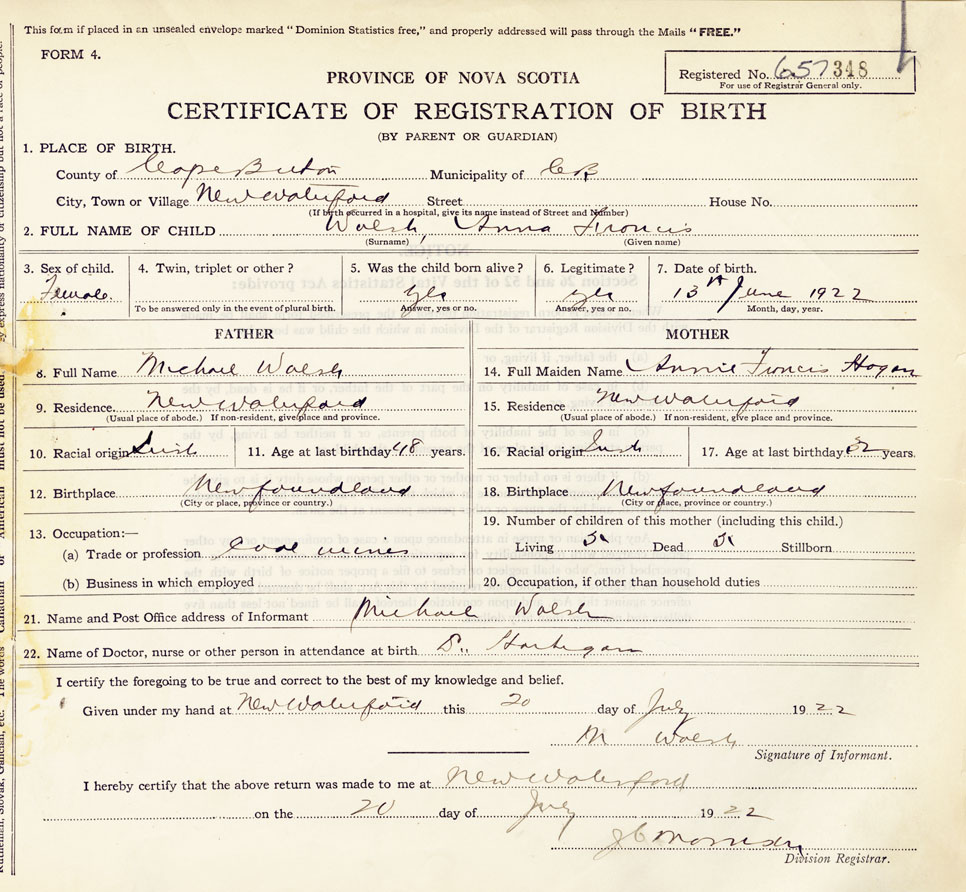 This form if placed in an unsealed envelope marked "Dominion Statistics free," and properly addressed will pass through the Mails "FREE."
FORM 4.
PROVINCE OF NOVA SCOTIA
Registered No. 657 348
For use of Registrar General only.
CERTIFICATE OF REGISTRATION OF BIRTH
(BY PARENT OR GUARDIAN)
1. PLACE OF BIRTH.
County of Cape Breton Municipality of C B
City, Town or Village New Waterford Street House No.
(If birth occurred in a hospital, give its name instead of Street and Number)
2. FULL NAME OF CHILD Walsh, Anna Francis
(Surname) (Given name)
3. Sex of child. 4. Twin, triplet or other? 5. Was the child born alive? 6. Legitimate? 7. Date of birth.
Female yes yes 13th June 1922
To be answered only in the event of plural birth. Answer, yes or no. Answer, yes or no. Month, day, year.
FATHER MOTHER
8. Full Name Michael Walsh 14. Full Maiden Name Annie Francis Hogan
9. Residence New Waterford 15. Residence New Waterford
(Usual place of abode.) If non-resident, give place and province. (Usual place of abode.) If non-resident, give place and province.
10. Racial origin Irish 11. Age at last birthday 48 years. 16. Racial origin Irish 17. Age at last birthday 32 years.
12. Birthplace Newfoundland 18. Birthplace Newfoundland
(City or place, province or country.) (City or place, province or country.)
13. Occupation:— 19. Number of children of this mother (including this child.)
(a) Trade or profession Coal miner Living Dead Stillborn
(b) Business in which employed 20. Occupation, if other than household duties
21. Name and Post Office address of Informant Michael Walsh
22. Name of Doctor, nurse or other person in attendance at birth Hartigan
I certify the foregoing to be true and correct to the best of my knowledge and belief.
Given under my hand at New Waterford this 20 day of July 1922
M Walsh
Signature of Informant.
I hereby certify that the above return was made to me at New Waterford
on the 20 day of July 1922
J C Morrison
Division Registrar.